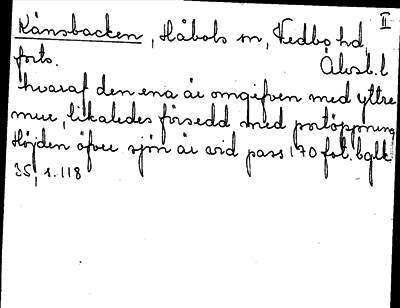 Rånsbacken, Håbols sn, Vedbo hd, II
forts. Älvsb. l
hvaraf den ena är omgifven med yttre
mur, likaledes försedd med portöppning
Höjden öfver sjön är vid pass 170 fot.
35, s. 118